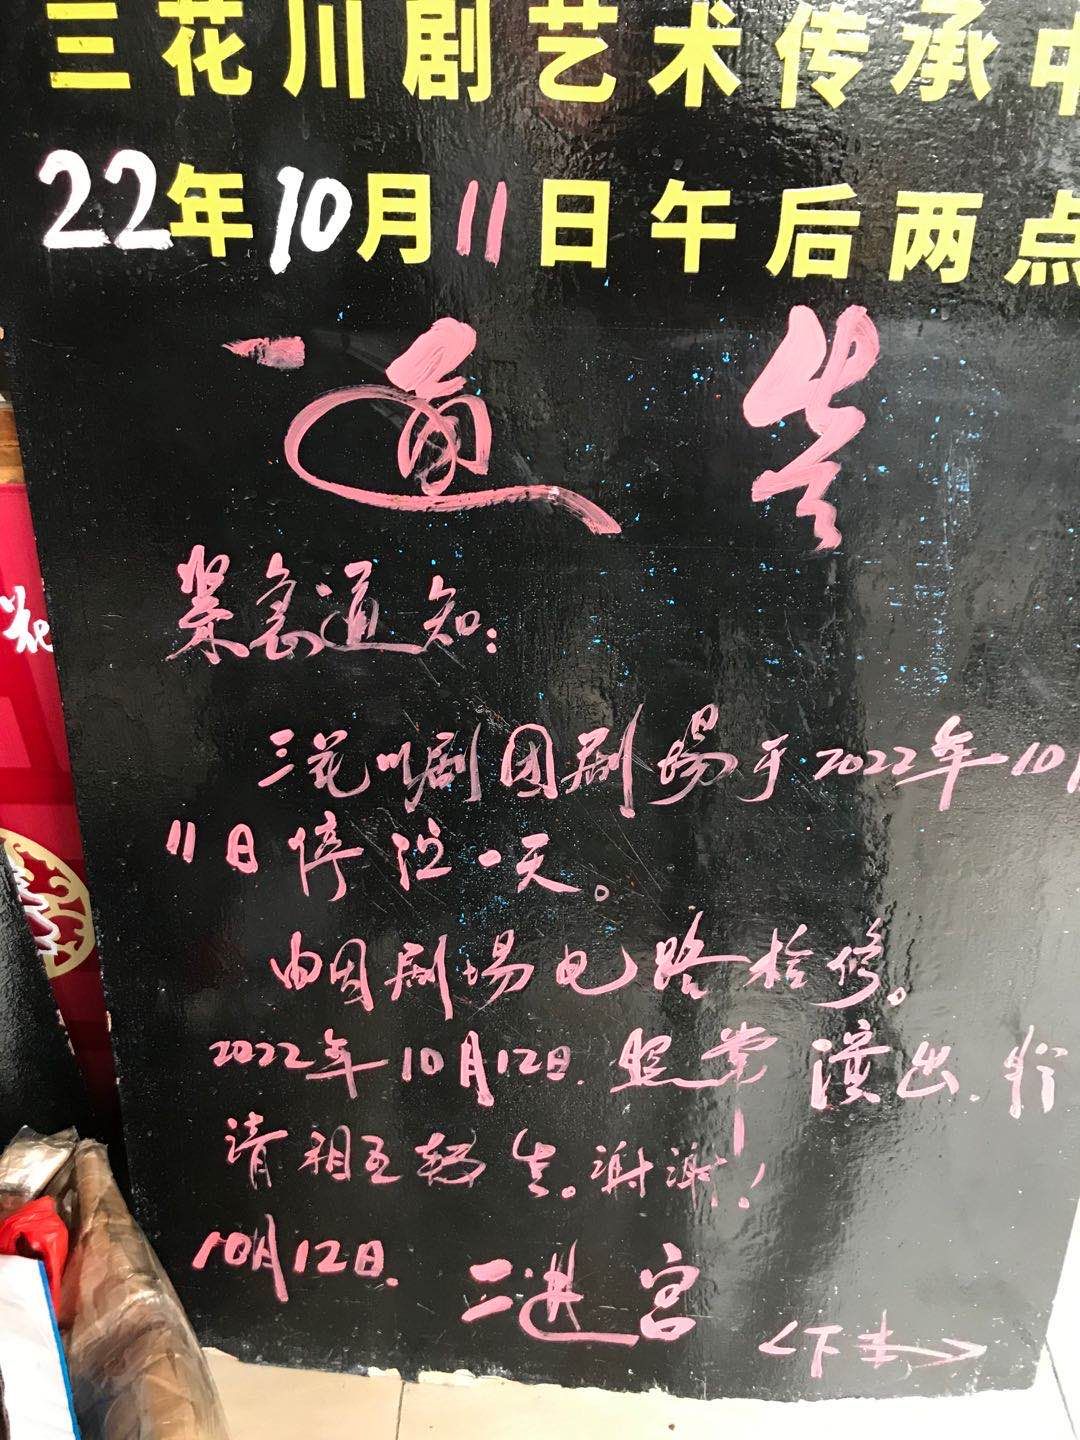 三花川剧艺术传承中
22年10月11日午后两点
通告
紧急通知:
三花川剧团剧场于2022年10月
11日停演一天。
内因剧场电路检修。
2022年10月12日.照常演出.
请相互转告。谢谢!
10月12日. 二进宫
<下本>
花